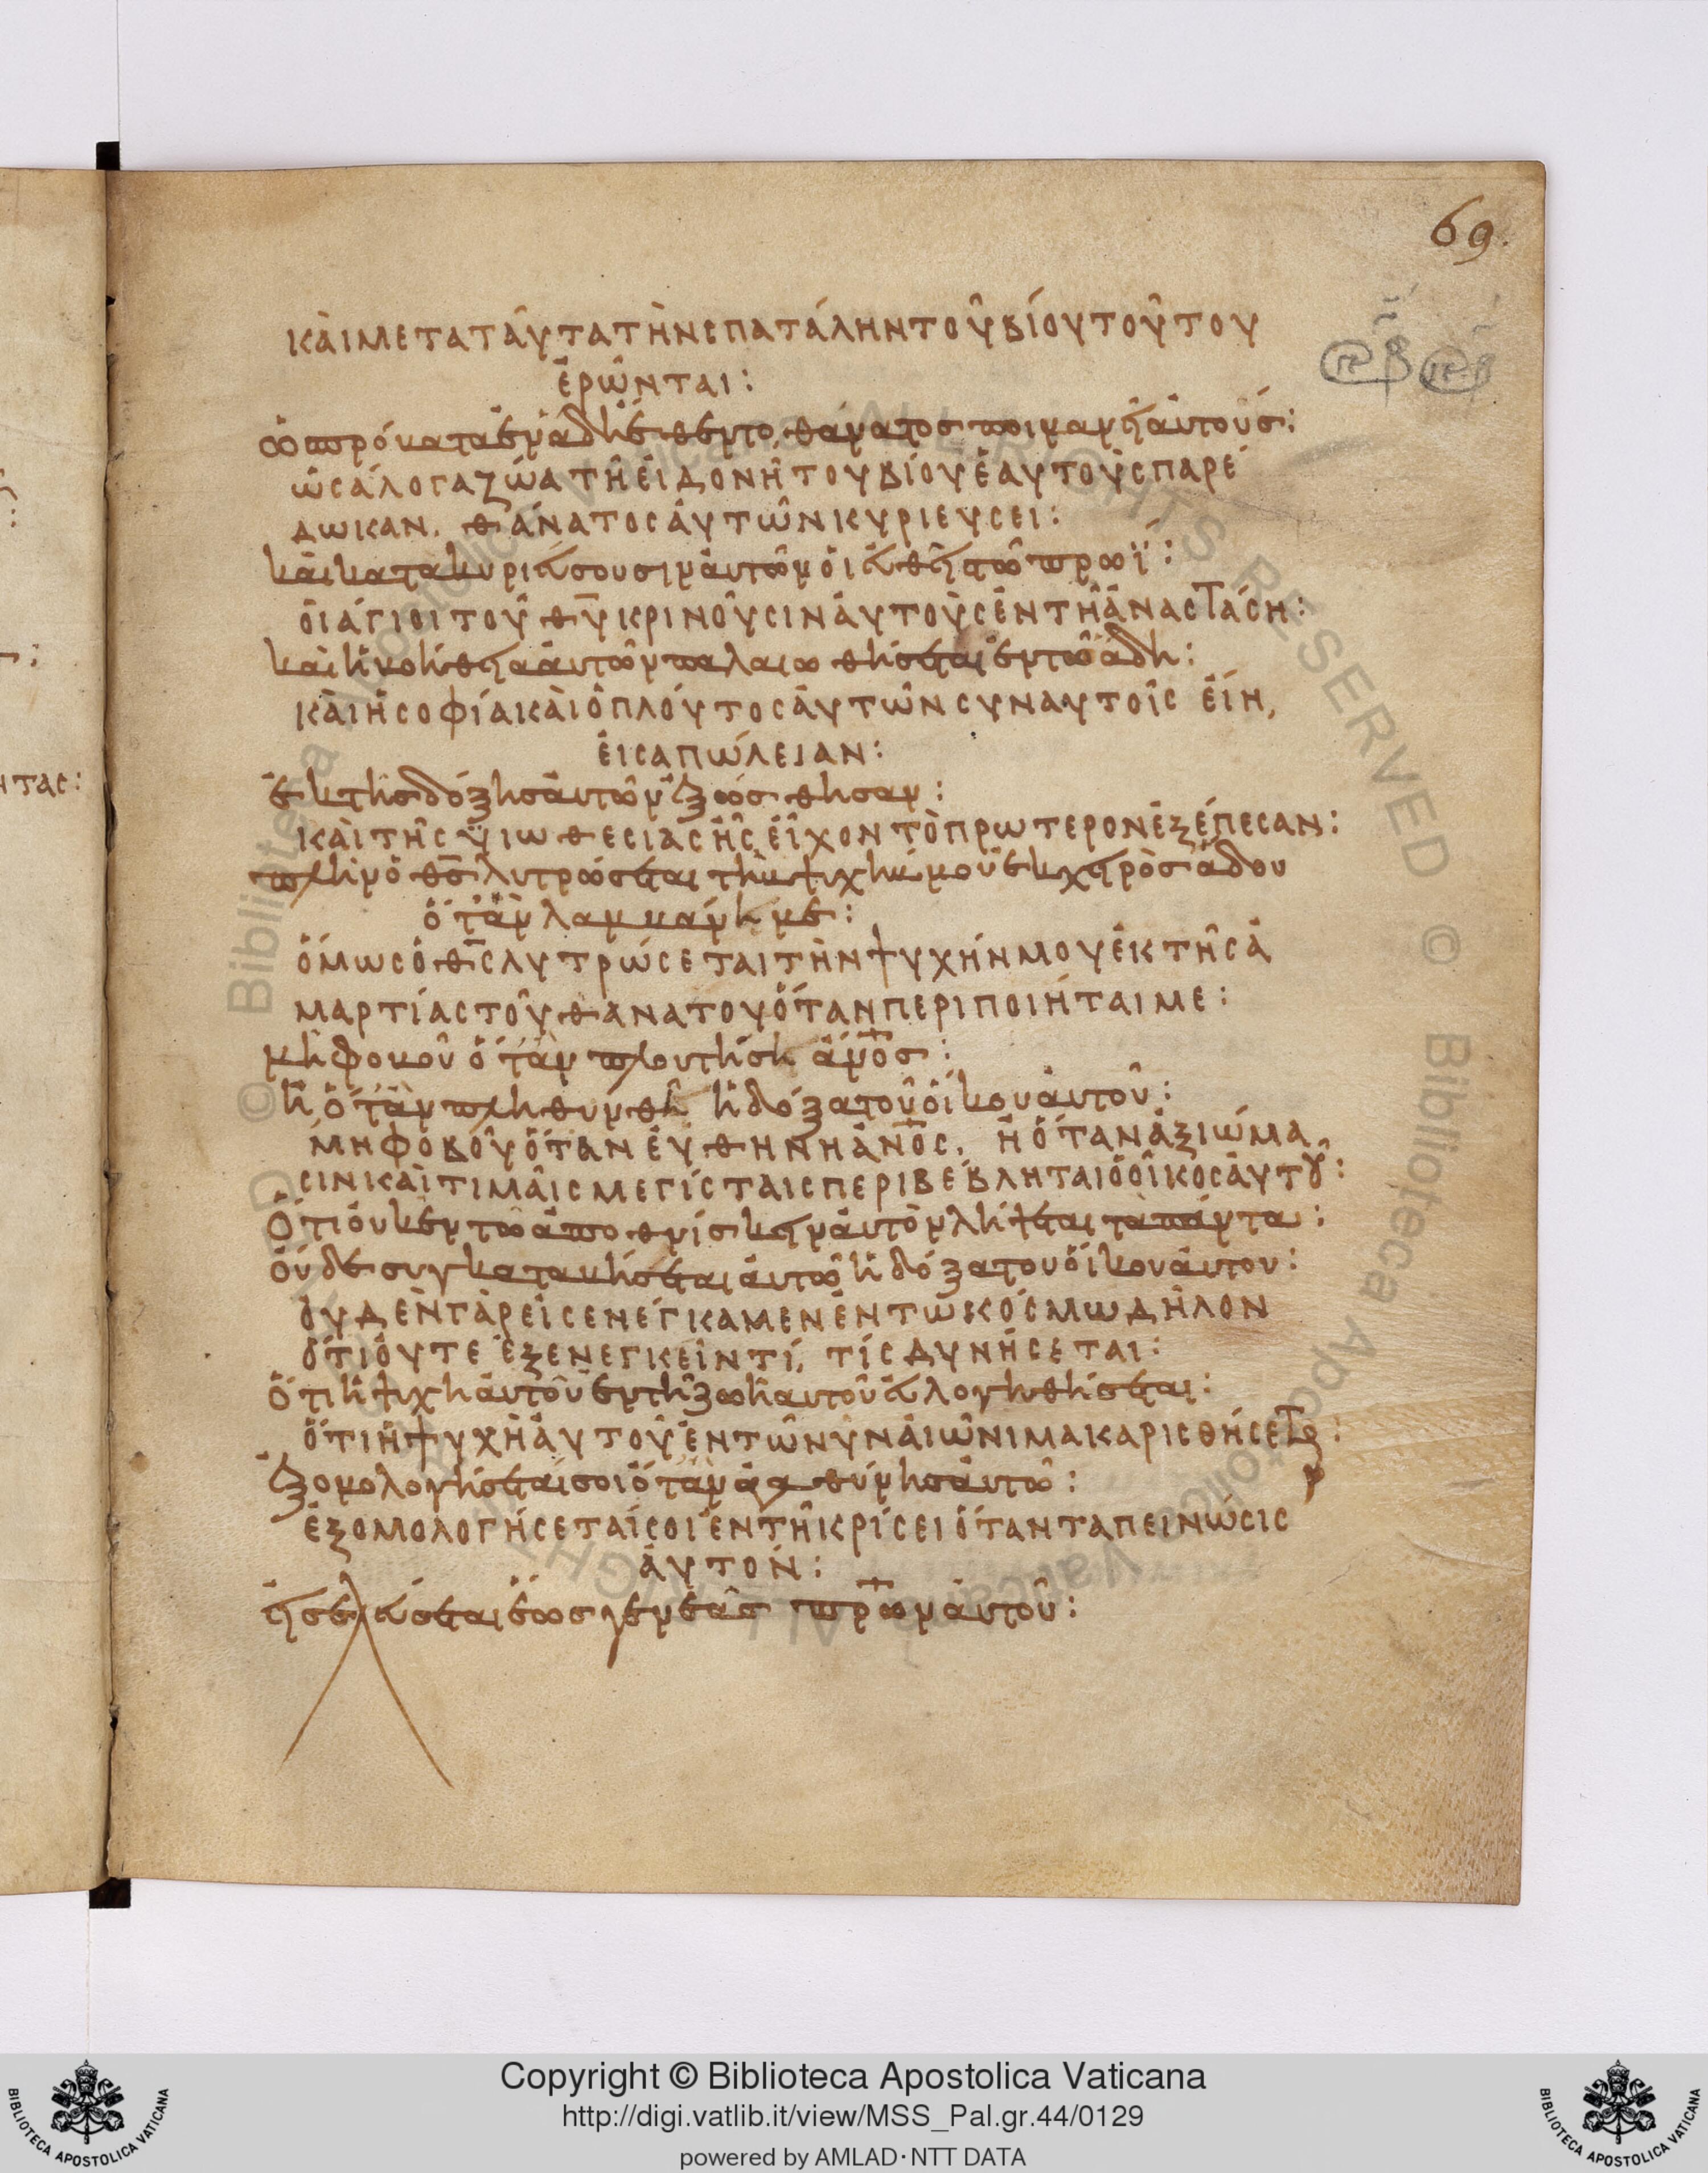 69.
κὰι μετα τᾶυτα τὴν σπατάλην τοῦ βίου τοῦτου
ἐρῶνται:
ὡ πρόβατα ἐν ἄδη ἔθεντο, θάνατος ποιμανεῖ ἀυτούς:
ὡς ἄλογα ζώα τῆ εἱδονῆ του βίου ἑαυτοὺς παρέ
δωκαν. θάνατος ἀυτῶν κυριευσει:
κὰι κατακυριεύσουσιν ἀυτῶν ὁι ἐυθεῖς τῶ πρωΐ:
ὁι άγιοι τοῦ θῡ κρινοῦσιν ἀυτοὺς ἐν τῆ ἀναστάση:
κὰι ἡ βοήθεια ἀυτῶν παλαιωθήσεται ἐν τῶ ἄδη:
κὰι ἡ σοφία κὰι ὁ πλόυτος ἀυτῶν συν αυτοῖς ἐίη,
ἐις απώλειαν:
ἐκ τῆς δόξης ἀυτῶν ἐξώσθησαν:
κὰι τῆς ϋιωθεσιας ἧς ἐῖχον τὸ πρωτερον ἐξέπεσαν:
πλὴν ὁ θς̄ λυτρώσεται τὴν ψυχήν μου ἐκ χειρὸς ἄδου
ὅταν λαμβάνη με:
ὅμως ὁ θς̄ λυτρώσεται τὴν ψυχήν μου ἐκ τῆς ἁ
μαρτίας τοῦ θανατου ὅταν περιποιήται με:
μὴ φοβοῦ ὅταν πλουτήση ἄνο̄ς:
ἢ ὅταν πληθύνθῆ ἡ δόξα τοῦ ὀίκου ἀυτοῦ:
μὴ φοβοῦ ὅταν ἐυθηνη ἄνο̄ς, ἢ ὅταν ἀξιώμα
σιν κὰι τιμᾶις μεγίσταις περιβέβληται ὁ οῖκος ἀυτοῦ:
Ὅτι ὀυκ ἐν τῶ ἀποθνίσκειν ἀυτὸν λήψεται τὰ πάντα:
ὀυδὲ συγκαταβήσεται ἀυτῶ ἡ δόξα του ὀίκου ἀυτου:
ὀυδὲν γὰρ εἰσενέγκαμεν ἐν τῶ κόσμω δῆλον
ὅτι ὀυτε ἐξενεγκεῖν τί, τίς δυνήσεται:
ὅτι ἡ ψυχὴ ἀυτοῦ ἐν τῆ ζωῆ αυτοῦ ἐυλογηθήσεται:
ὅτι ἡ ψυχὴ ἀυτοῦ ἐν τῶ νῦν ἀιῶνι μακαρισθήσεται:
ἐξομολογήσεταί σοι ὅταν ἀγαθύνης ἀυτῶ:
ἐξομολογήσεταί σοι ἐν τῆ κρίσει ὅταν ταπεινώσις
ἀυτόν:
εἰσελεύσεται ἕως γενεᾶς πρ̄ων ἀυτοῦ:
Copyright © Biblioteca Apostolica Vaticana
http://digi.vatlib.it/view/MSS_Pal.gr.44/0129
powered by AMLAD·NTT DATA
BIBLIOTECA APOSTOLICA VATICANA
BIBLIOTECA APOSTOLICA VATICANA